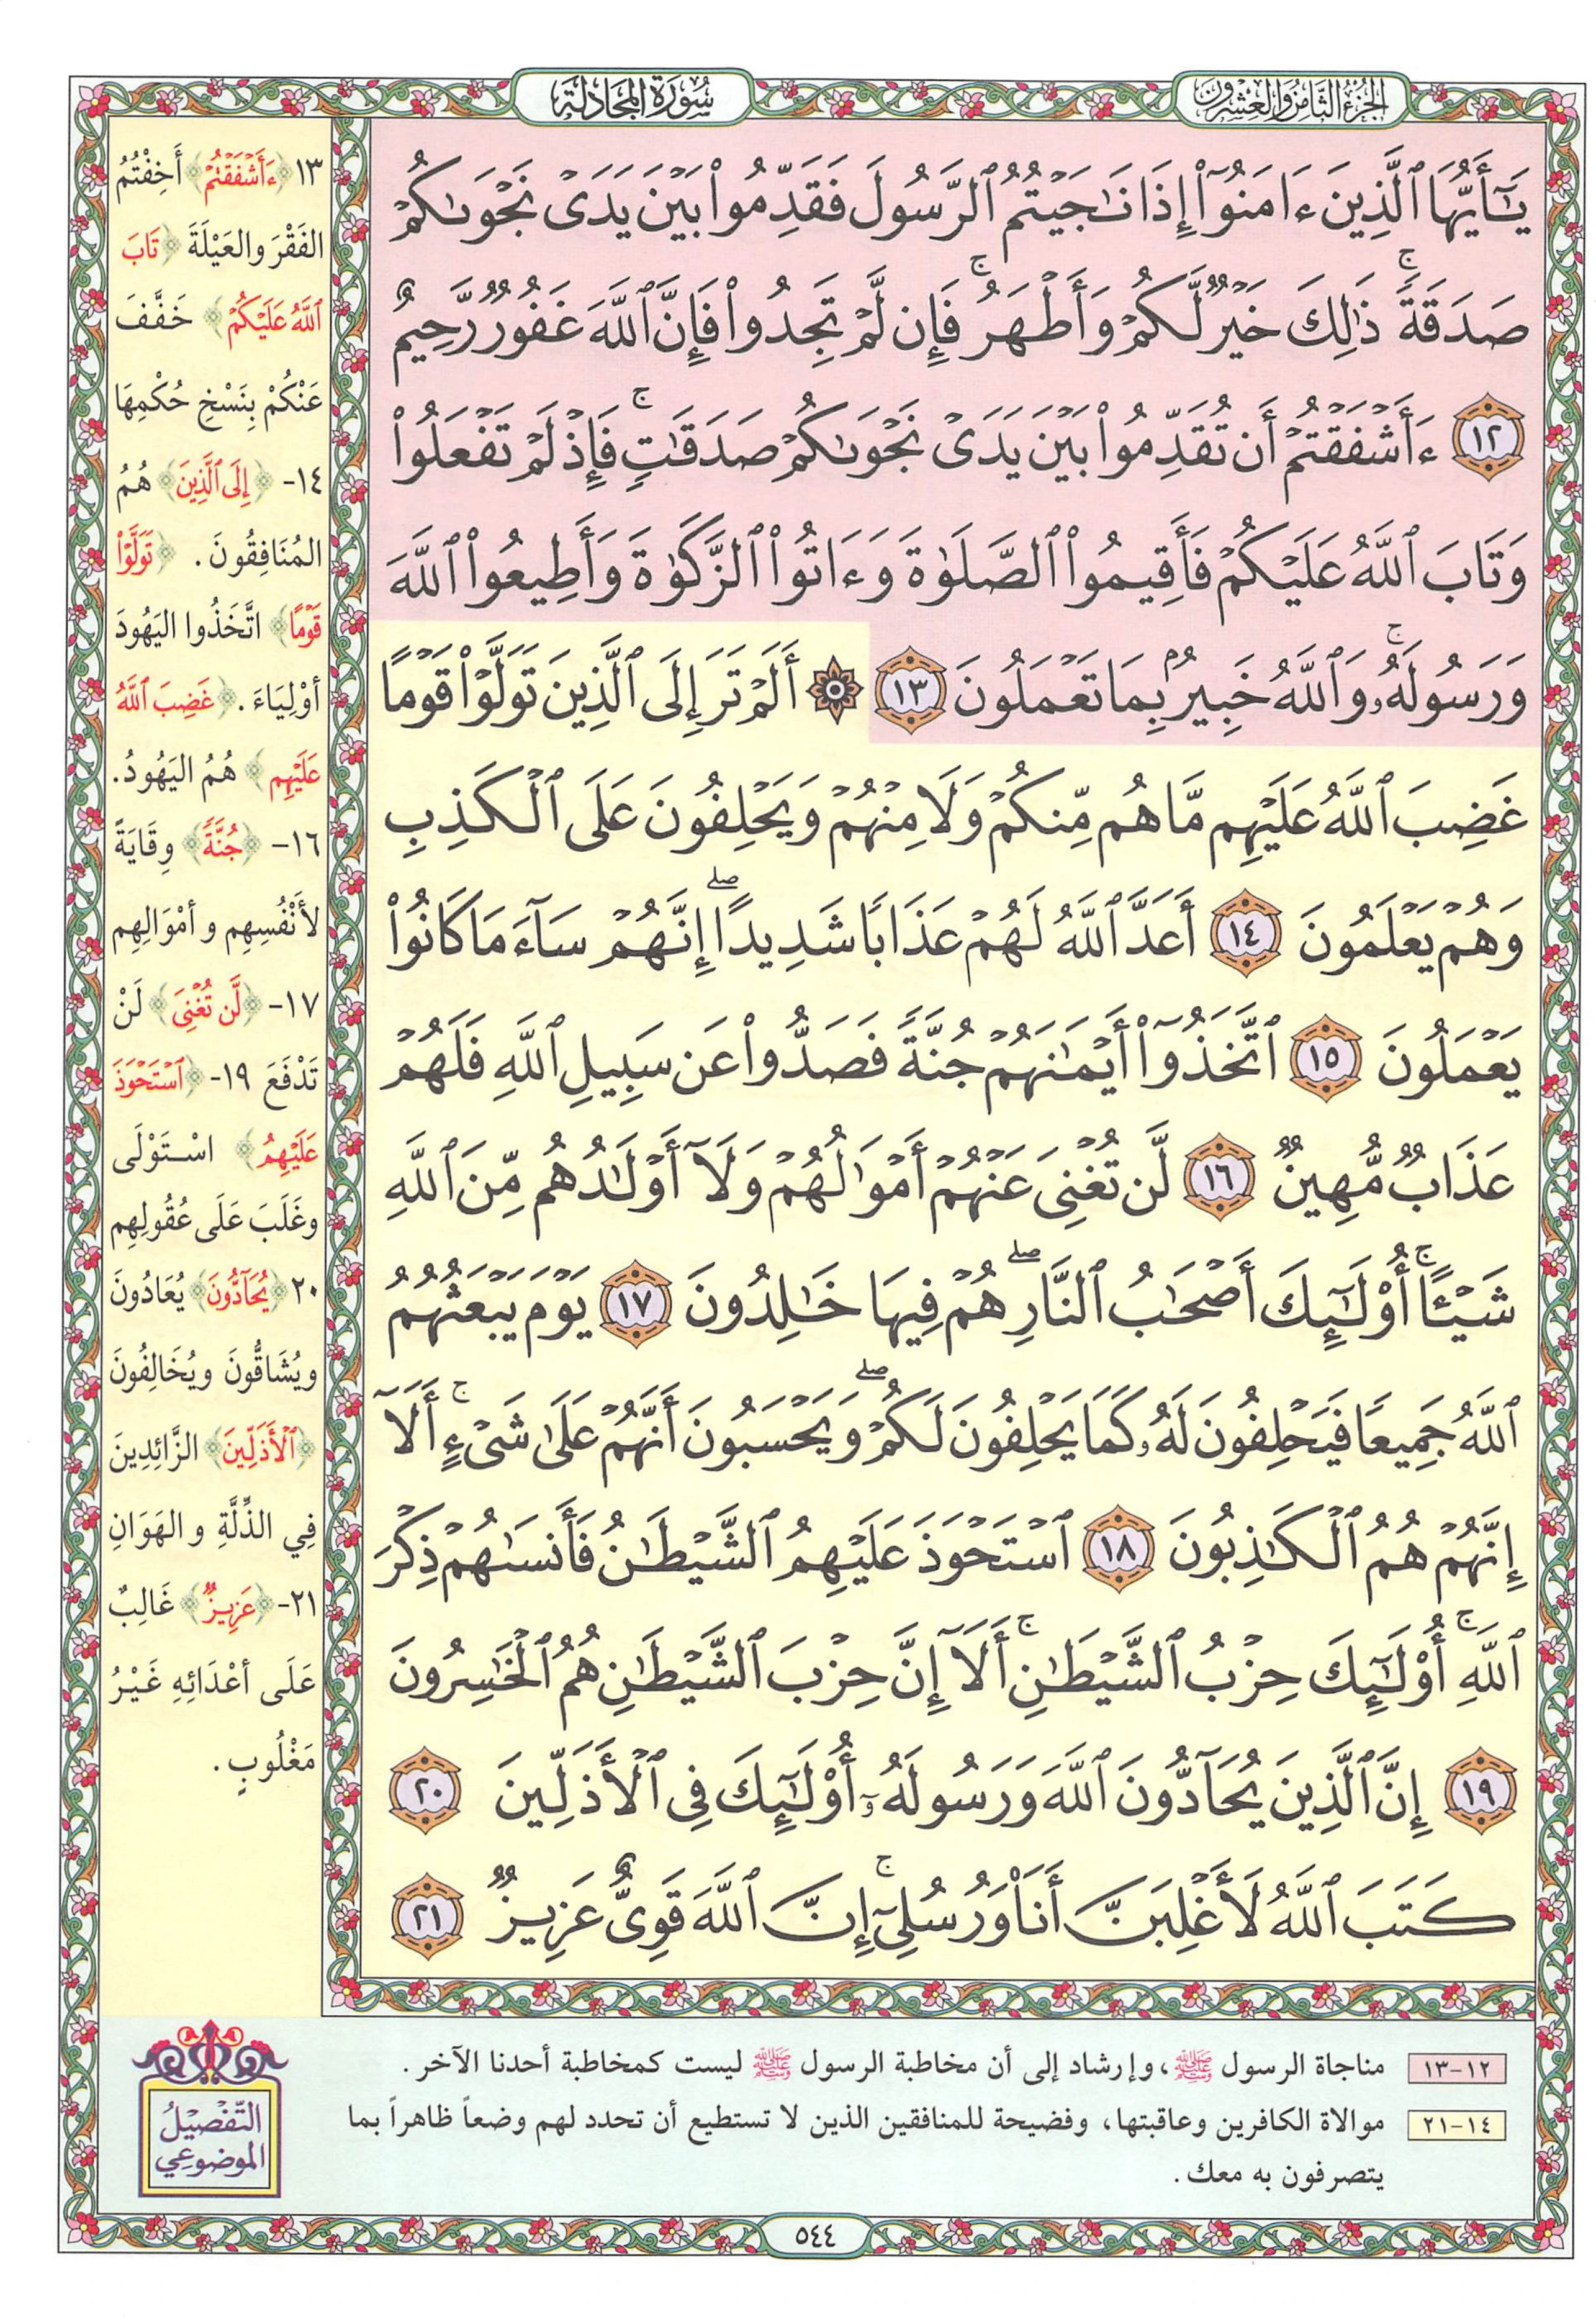 الجزء الثامن والعشرون
سورة المجادلة
يَـٰٓأَيُّهَا ٱلَّذِينَ ءَامَنُوٓا۟ إِذَا نَـٰجَيْتُمُ ٱلرَّسُولَ فَقَدِّمُوا۟ بَيْنَ يَدَىْ نَجْوَىٰكُمْ
صَدَقَةً ۚ ذَٰلِكَ خَيْرٌ لَّكُمْ وَأَطْهَرُ ۚ فَإِن لَّمْ تَجِدُوا۟ فَإِنَّ ٱللَّهَ غَفُورٌ رَّحِيمٌ
١٢ ءَأَشْفَقْتُمْ أَن تُقَدِّمُوا۟ بَيْنَ يَدَىْ نَجْوَىٰكُمْ صَدَقَـٰتٍ ۚ فَإِذْ لَمْ تَفْعَلُوا۟
وَتَابَ ٱللَّهُ عَلَيْكُمْ فَأَقِيمُوا۟ ٱلصَّلَوٰةَ وَءَاتُوا۟ ٱلزَّكَوٰةَ وَأَطِيعُوا۟ ٱللَّهَ
وَرَسُولَهُۥ ۚ وَٱللَّهُ خَبِيرٌۢ بِمَا تَعْمَلُونَ ١٣ ۞ أَلَمْ تَرَ إِلَى ٱلَّذِينَ تَوَلَّوْا۟ قَوْمًا
غَضِبَ ٱللَّهُ عَلَيْهِم مَّا هُم مِّنكُمْ وَلَا مِنْهُمْ وَيَحْلِفُونَ عَلَى ٱلْكَذِبِ
وَهُمْ يَعْلَمُونَ ١٤ أَعَدَّ ٱللَّهُ لَهُمْ عَذَابًا شَدِيدًا ۖ إِنَّهُمْ سَآءَ مَا كَانُوا۟
يَعْمَلُونَ ١٥ ٱتَّخَذُوٓا۟ أَيْمَـٰنَهُمْ جُنَّةً فَصَدُّوا۟ عَن سَبِيلِ ٱللَّهِ فَلَهُمْ
عَذَابٌ مُّهِينٌ ١٦ لَّن تُغْنِىَ عَنْهُمْ أَمْوَٰلُهُمْ وَلَآ أَوْلَـٰدُهُم مِّنَ ٱللَّهِ
شَيْـًٔا ۚ أُو۟لَـٰٓئِكَ أَصْحَـٰبُ ٱلنَّارِ ۖ هُمْ فِيهَا خَـٰلِدُونَ ١٧ يَوْمَ يَبْعَثُهُمُ
ٱللَّهُ جَمِيعًا فَيَحْلِفُونَ لَهُۥ كَمَا يَحْلِفُونَ لَكُمْ ۖ وَيَحْسَبُونَ أَنَّهُمْ عَلَىٰ شَىْءٍ ۚ أَلَآ
إِنَّهُمْ هُمُ ٱلْكَـٰذِبُونَ ١٨ ٱسْتَحْوَذَ عَلَيْهِمُ ٱلشَّيْطَـٰنُ فَأَنسَىٰهُمْ ذِكْرَ
ٱللَّهِ ۚ أُو۟لَـٰٓئِكَ حِزْبُ ٱلشَّيْطَـٰنِ ۚ أَلَآ إِنَّ حِزْبَ ٱلشَّيْطَـٰنِ هُمُ ٱلْخَـٰسِرُونَ
١٩ إِنَّ ٱلَّذِينَ يُحَآدُّونَ ٱللَّهَ وَرَسُولَهُۥٓ أُو۟لَـٰٓئِكَ فِى ٱلْأَذَلِّينَ ٢٠
كَتَبَ ٱللَّهُ لَأَغْلِبَنَّ أَنَا۠ وَرُسُلِىٓ ۚ إِنَّ ٱللَّهَ قَوِىٌّ عَزِيزٌ ٢١
١٣ ﴿ءَأَشْفَقْتُمْ﴾ أَخِفْتُمُ
الفَقْرَ والعَيْلَةَ ﴿تَابَ
ٱللَّهُ عَلَيْكُمْ﴾ خَفَّفَ
عَنْكُمْ بِنَسْخِ حُكْمِهَا
١٤- ﴿إِلَى ٱلَّذِينَ﴾ هُمُ
المُنَافِقُونَ. ﴿تَوَلَّوْا۟
قَوْمًا﴾ اتَّخَذُوا اليَهُودَ
أوْلِيَاءَ. ﴿غَضِبَ ٱللَّهُ
عَلَيْهِم﴾ هُمُ اليَهُودُ.
١٦- ﴿جُنَّةً﴾ وِقَايَةً
لأَنْفُسِهِم و أمْوَالِهِم
١٧- ﴿لَّن تُغْنِىَ﴾ لَنْ
تَدْفَعَ ١٩- ﴿ٱسْتَحْوَذَ
عَلَيْهِمُ﴾ اسْتَوْلَى
وغَلَبَ عَلَى عُقُولِهِم
٢٠ ﴿يُحَآدُّونَ﴾ يُعَادُونَ
ويُشَاقُّونَ ويُخَالِفُونَ
﴿ٱلْأَذَلِّينَ﴾ الزَّائِدِينَ
فِي الذِّلَّةِ و الهَوَانِ
٢١- ﴿عَزِيزٌ﴾ غَالِبٌ
عَلَى أعْدَائِهِ غَيْرُ
مَغْلُوبٍ.
١٢-١٣ مناجاة الرسول ﷺ، وإرشاد إلى أن مخاطبة الرسول ﷺ ليست كمخاطبة أحدنا الآخر.
١٤-٢١ موالاة الكافرين وعاقبتها، وفضيحة للمنافقين الذين لا تستطيع أن تحدد لهم وضعاً ظاهراً بما
يتصرفون به معك.
التَّفْصِيلُ
الموضوعي
٥٤٤